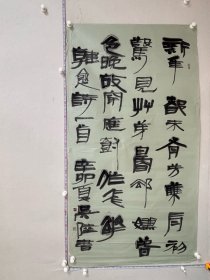 新年都未有芳華二月初
驚見草芽白雪卻嫌春
色晚故穿庭樹作飛花
韓愈詩一首 辛卯夏吳書